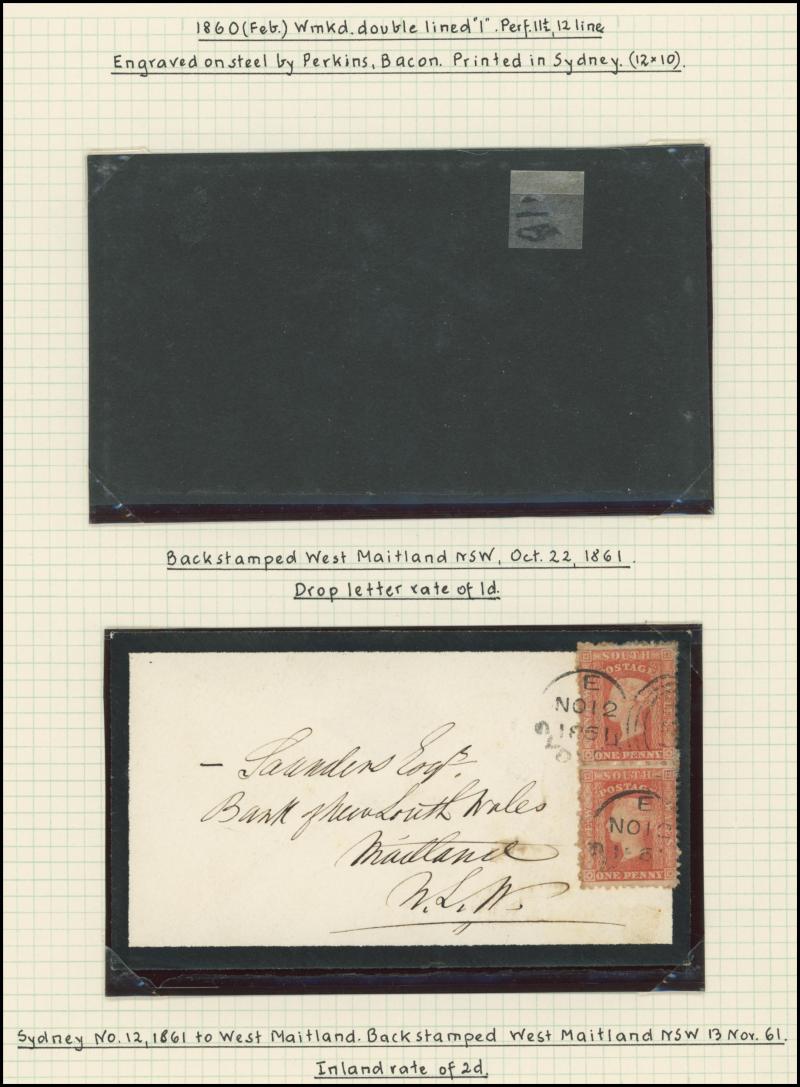 1860 (Feb.) Wmkd. double lined "1". Perf. 11½, 12 line
Engraved on steel by Perkins, Bacon. Printed in Sydney. (12×10).
Backstamped West Maitland NSW, Oct. 22, 1861.
Drop letter rate of 1d.
SOUTH
POSTAGE
ONE PENNY
E
NO 12
1861
– Saunders Esqr.
Bank of New South Wales
Maitland
N.S.W.
SOUTH
POSTAGE
ONE PENNY
E
NO 1
Sydney No. 12, 1861 to West Maitland. Backstamped West Maitland NSW 13 Nov. 61.
Inland rate of 2d.